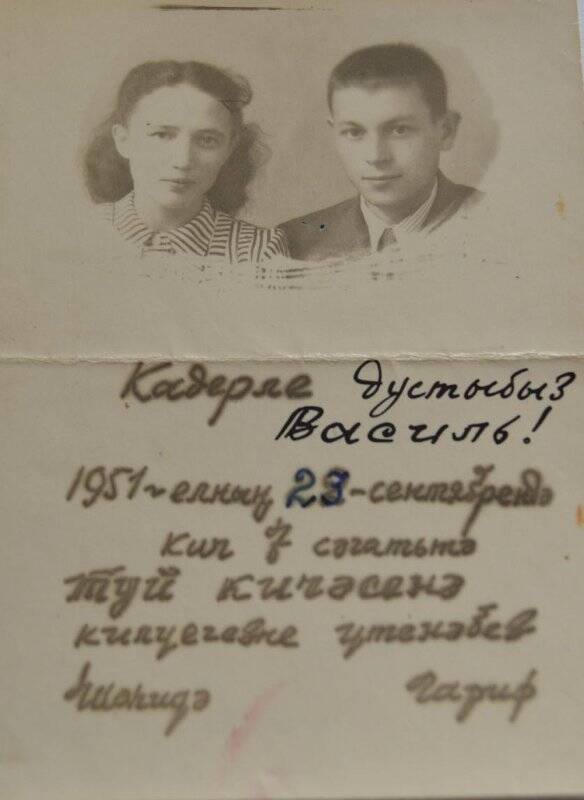 Кадерле дустыбыз
Василь!
1951-елның 23-сентябрендә
кич 7 сәгатьтә
туй кичәсенә
килүегезне үтенәбез
Шәһидә Гариф